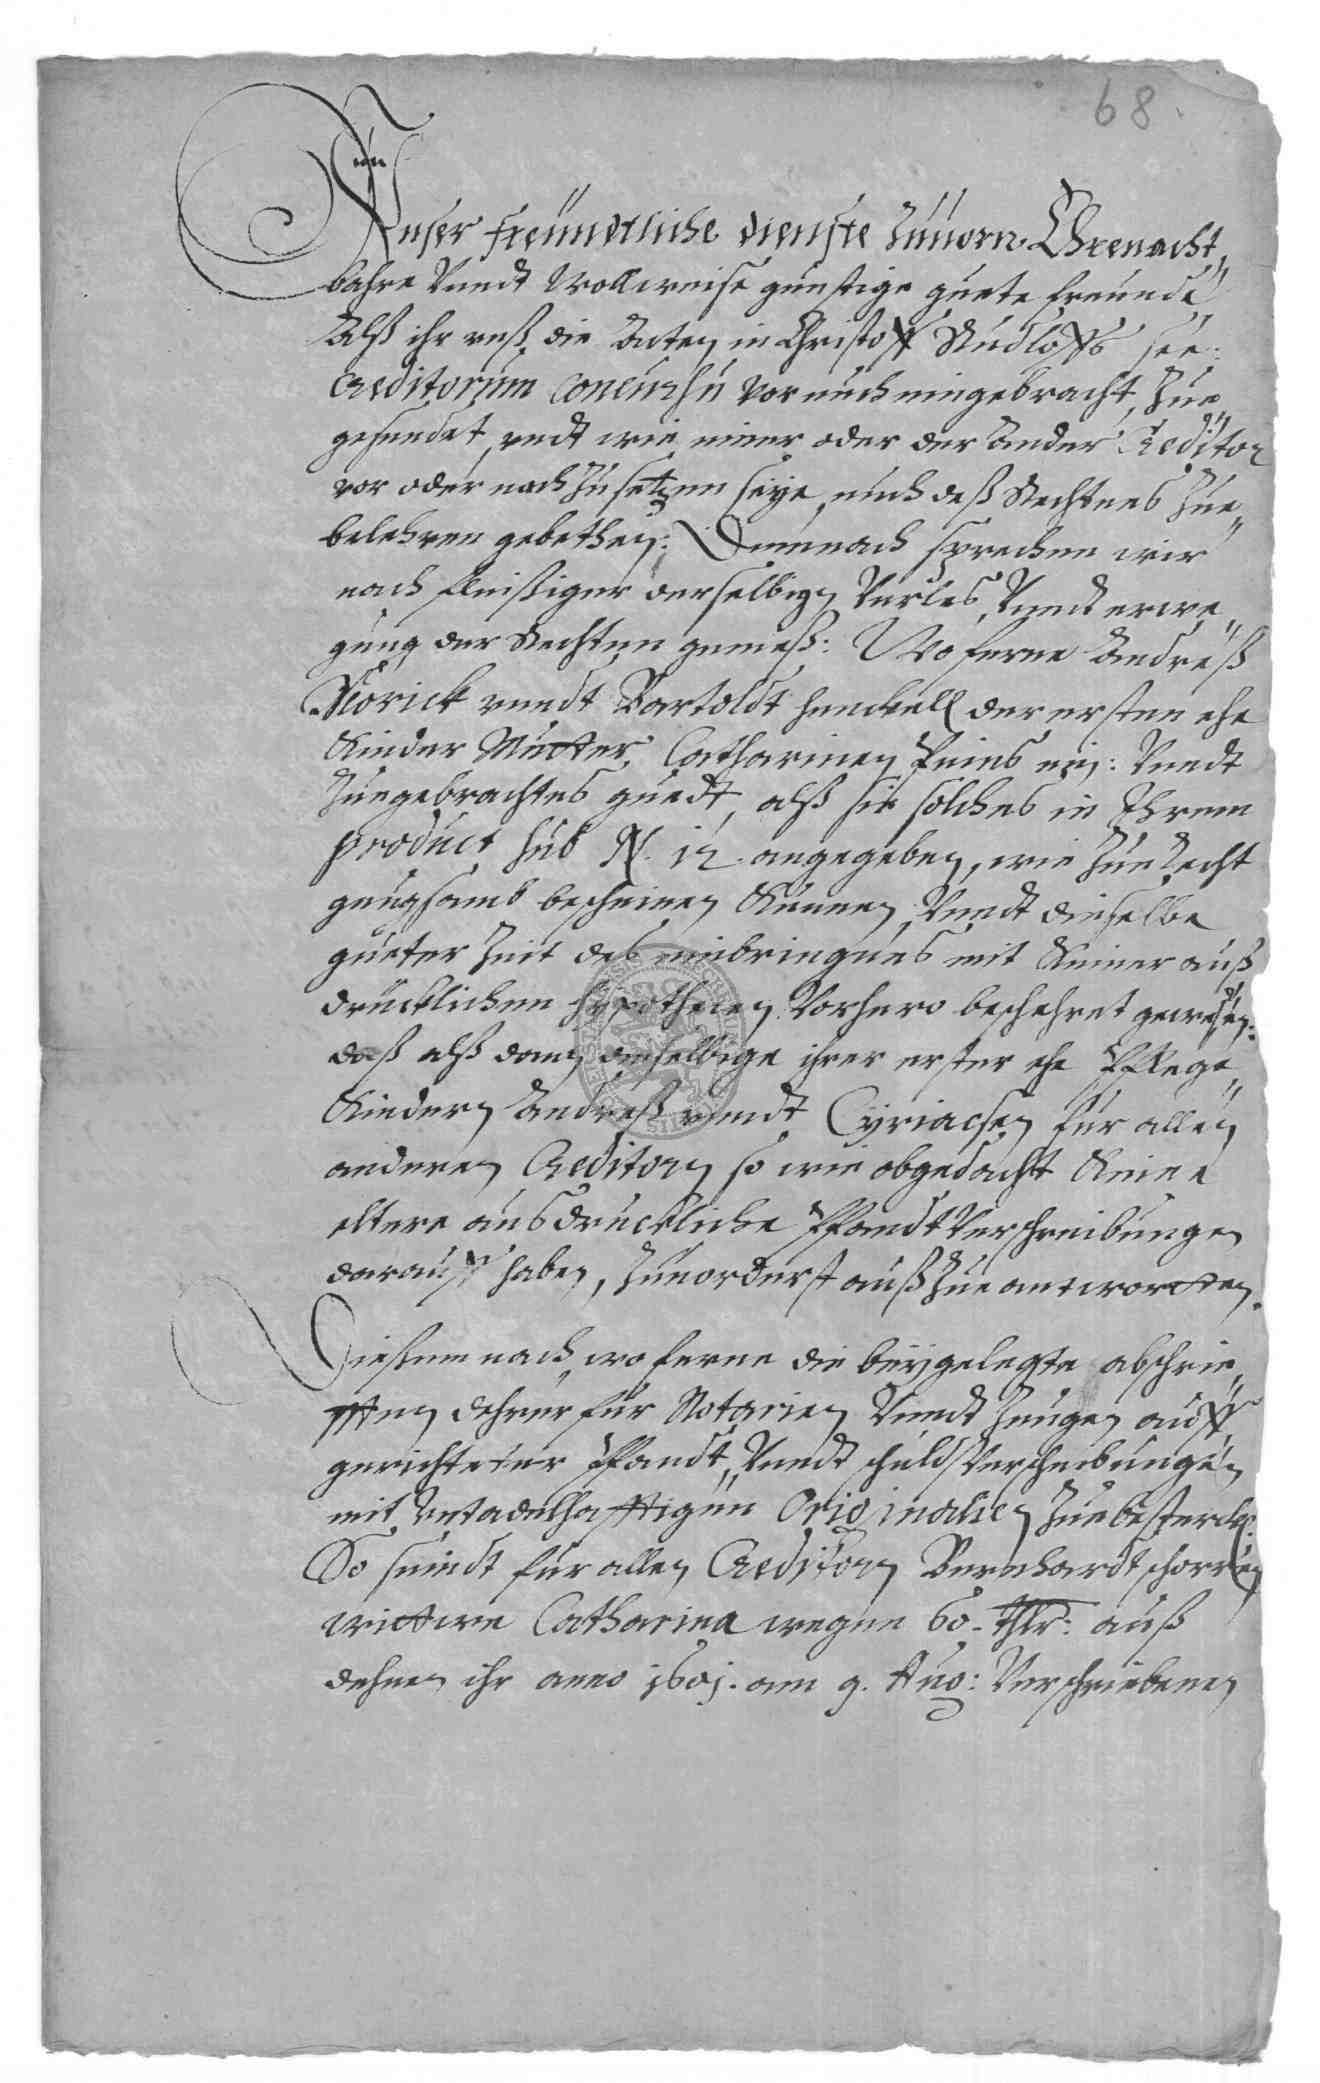 68.
Unser freundtliche dienste zuuorn. Ehrenacht,
bahre Vnndt Wollweise gunstige guete freunde
Alß ihr vnß die Acten in Christoff Rudloffs see:
Creditorum Concursu vor euch eingebracht, Zue
gesendet, vndt wie einer oder der Ander Creditor
vor oder nach zu setzen seye, euch deß Rechtens Zue
belehren gebethen: Demnach sprechen wir
nach fleißiger derselbigen Verles, Vnndt erwe,
gung der Rechten gemeß: Wo ferne Andreß
Morick vnndt Bartoldt Henckell der ersten ehe
Kinder Mutter, Catharinen Peins ein: Vnndt
Zuegebrachtes guedt, alß sie solches in Ihrem
product sub N. 12. angegeben, wie Zue Recht
genugsamb bescheinen Können, Vnndt dieselbe
gueter Zeit des einbringens mit Keiner auß
drücklichen hypothecen Vorhero beschehret gewesen:
daß alß dann dieselbige ihrer erster ehe Pflege
Kindern Andreß vnndt Cyriacsen für allen
anderen Creditorn so wie obgedacht Keine
eltere ausdruckliche Pfandt Verschreibungen
darauff haben, Zuuorderst auß Zue antwortten.
Diesem nach, wo ferne die beygelegte abschrie,
fften dehrer für Notarien Vnndt Zeugen auff
gerichteter Pfandt, Vnndt schuldt Verschreibungen
mit Vntadelhafftigen Originalien Zue besterck:
So seindt für allen Creditorn Bernhardt schorren
wittwe Catharina wegen 60. thlr: auß
dehnen ihr anno 1601. am 9. Aug: Verschriebenen